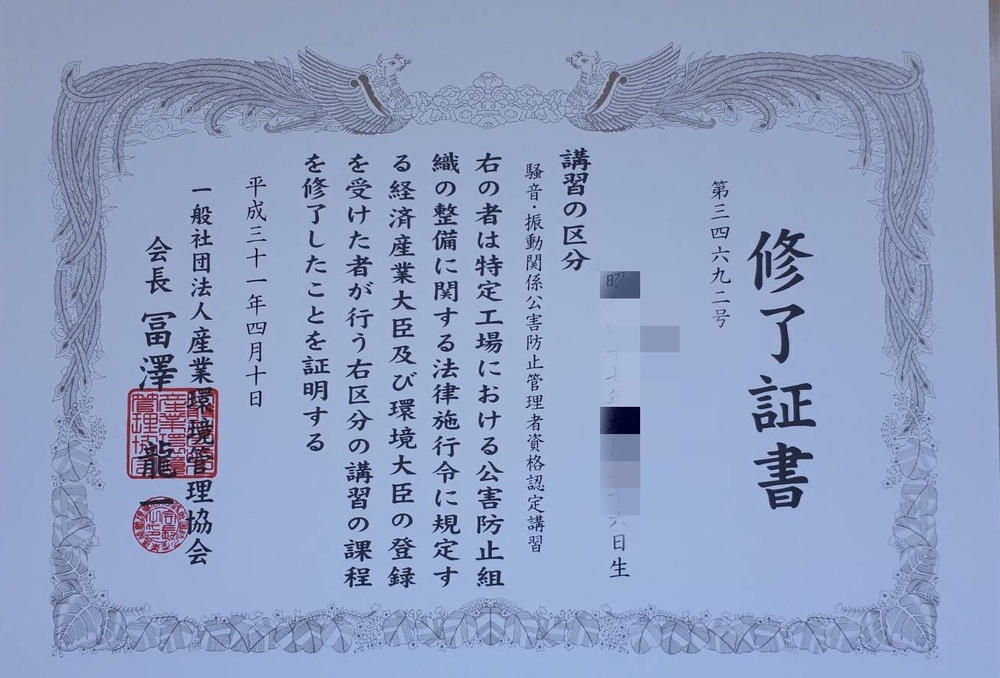 修了証書
第三四六九二号
日生
講習の区分
騒音・振動関係公害防止管理者資格認定講習
右の者は特定工場における公害防止組
織の整備に関する法律施行令に規定す
る経済産業大臣及び環境大臣の登録
を受けた者が行う右区分の講習の課程
を修了したことを証明する
平成三十一年四月十日
一般社団法人産業環境管理協会
会長 冨澤龍一